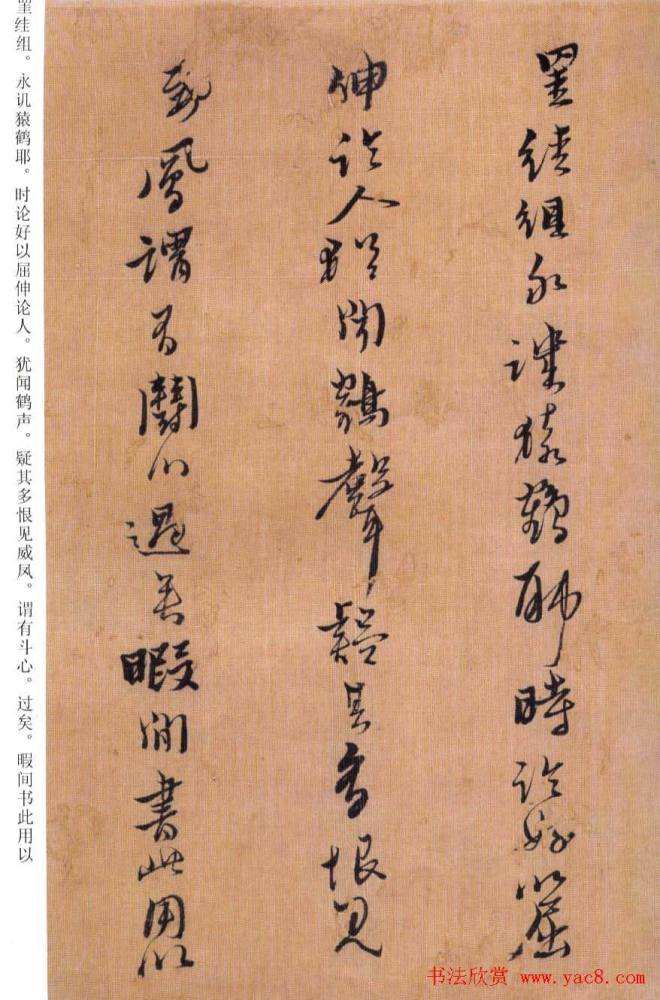 罣絓組永譏猿鶴耶時論好以屈
伸論人猶聞鶴聲疑其多恨見
威鳳謂有鬪心過矣暇間書此用以
罣絓组。永讥猿鹤耶。时论好以屈伸论人。犹闻鹤声。疑其多恨见威凤。谓有斗心。过矣。暇间书此用以
书法欣赏 www.yac8.com